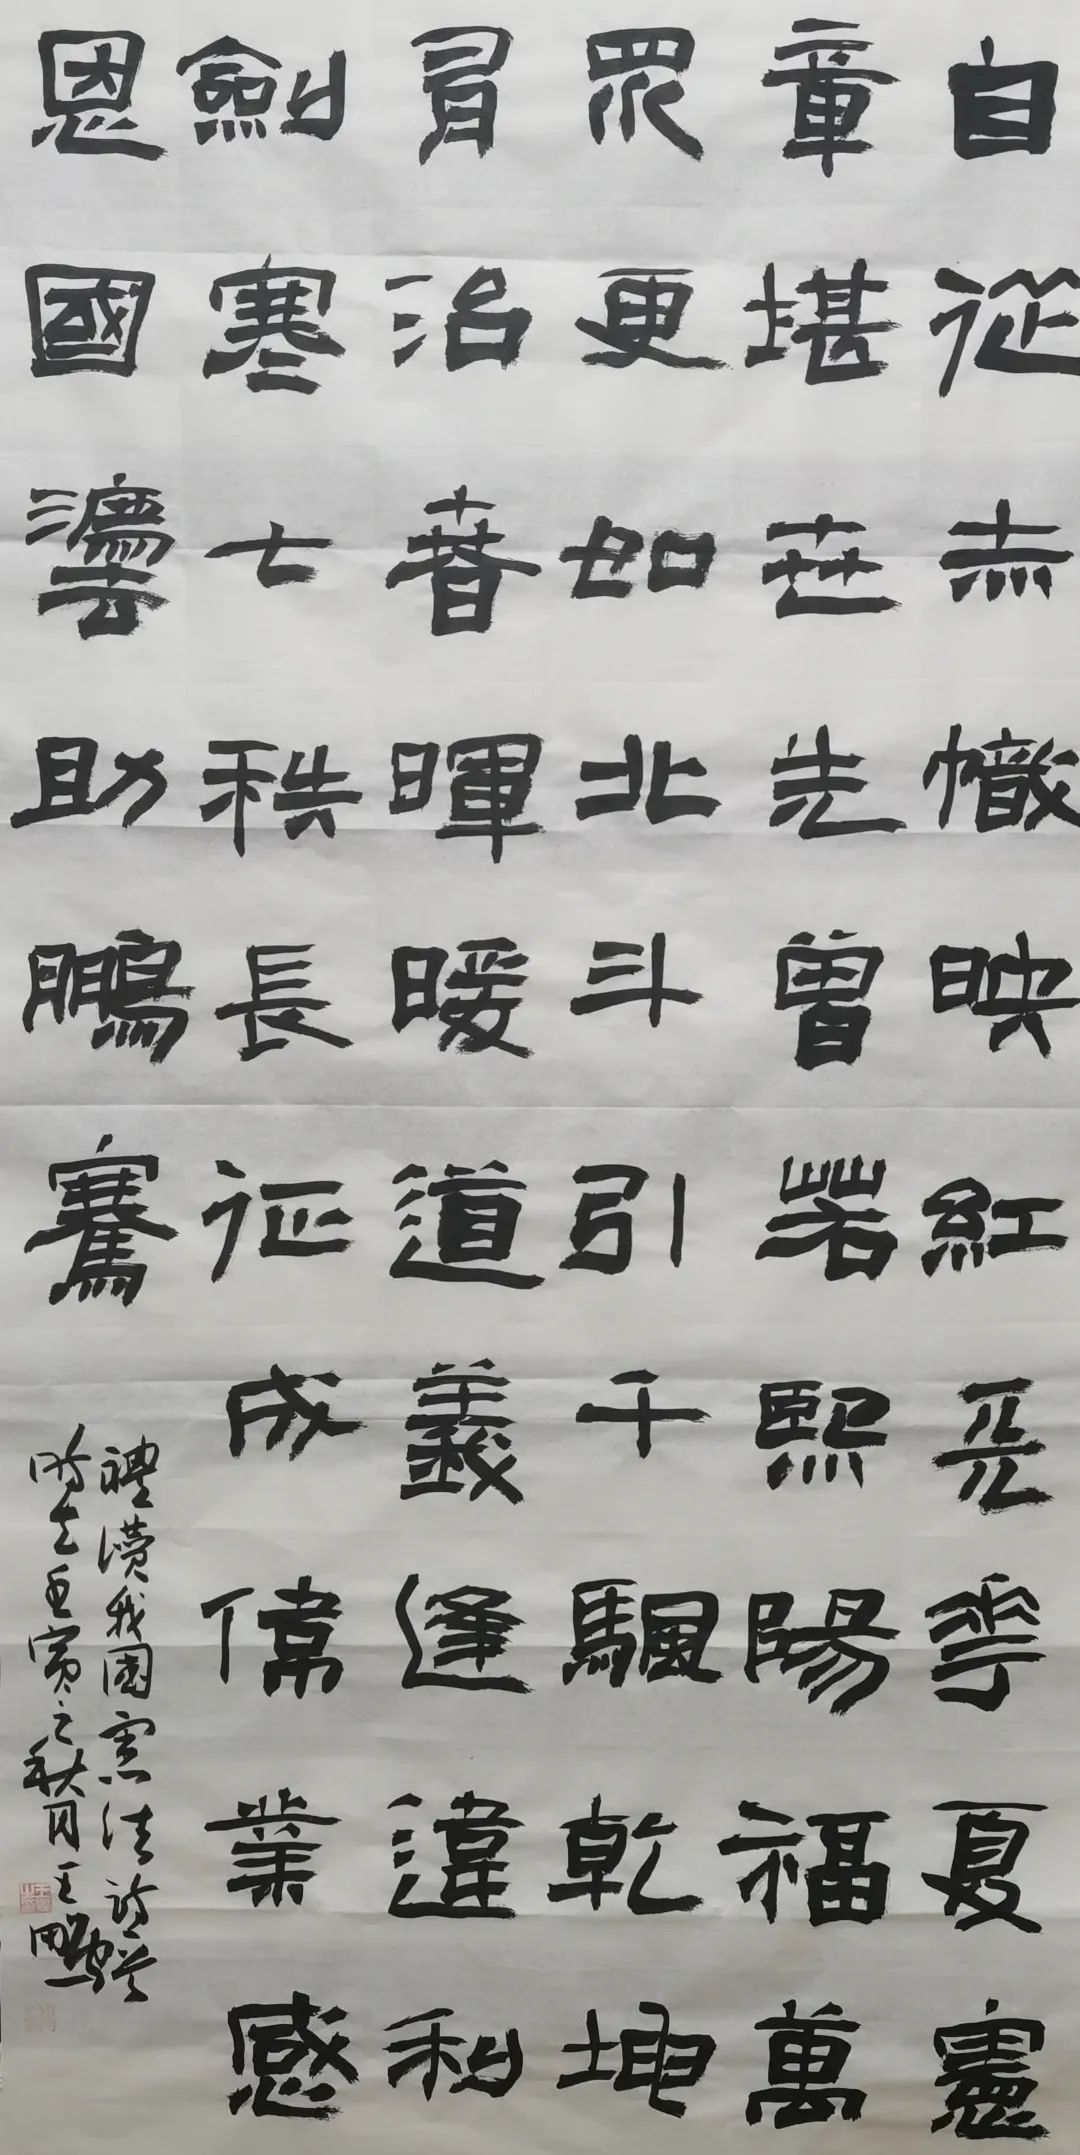 自從赤幟映紅天華夏憲
章堪世先曾若熙陽福萬
眾更如北斗引千颿乾坤
有治春暉暖道義逢違利
劍寒七秩長征成偉業感
恩國灋助鵬騫
禮讚我國憲法詩
時在壬寅之秋月王鵬